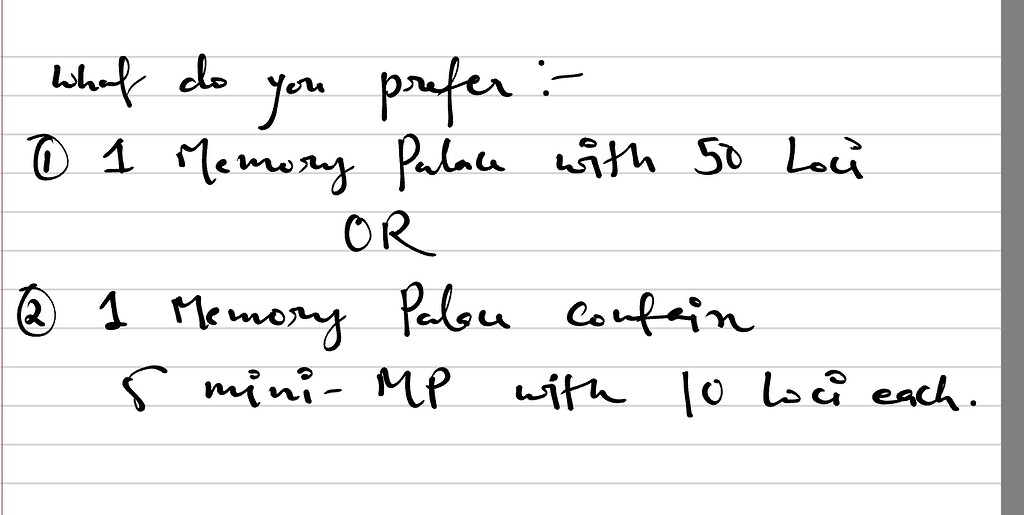 What do you prefer :-
① 1 Memory Palace with 50 Loci
OR
② 1 Memory Palace contain
5 mini-MP with 10 Loci each.